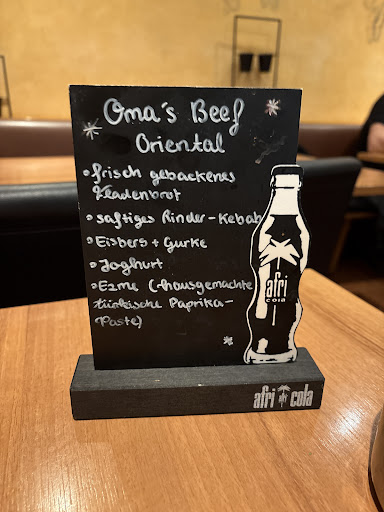 Oma's Beef
Oriental
• frisch gebackenes
Fladenbrot
• saftiges Rinder-Kebab
• Eisberg + Gurke
• Joghurt
• Ezme (-hausgemachte
türkische Paprika-
Paste)
afri
cola
afri cola